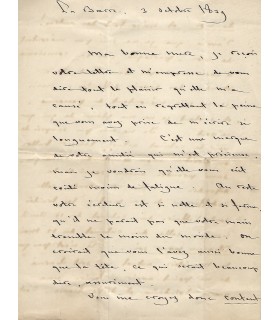 La Barre, 2 octobre 1859
Ma bonne mère, je reçois
votre lettre et m'empresse de vous
dire tout le plaisir qu'elle m'a
causé, tout en regrettant la peine
que vous avez prise de m'écrire si
longuement. C'est une marque
de votre amitié qui m'est précieuse,
mais je voudrais qu'elle vous eût
coûté moins de fatigue. Au reste
votre écriture est si nette et si ferme,
qu'il ne paraît pas que votre main
tremble le moins du monde. On
croirait que vous l'avez aussi bonne
que la tête, ce qui serait beaucoup
dire, assurément.
Vous me croyez donc content